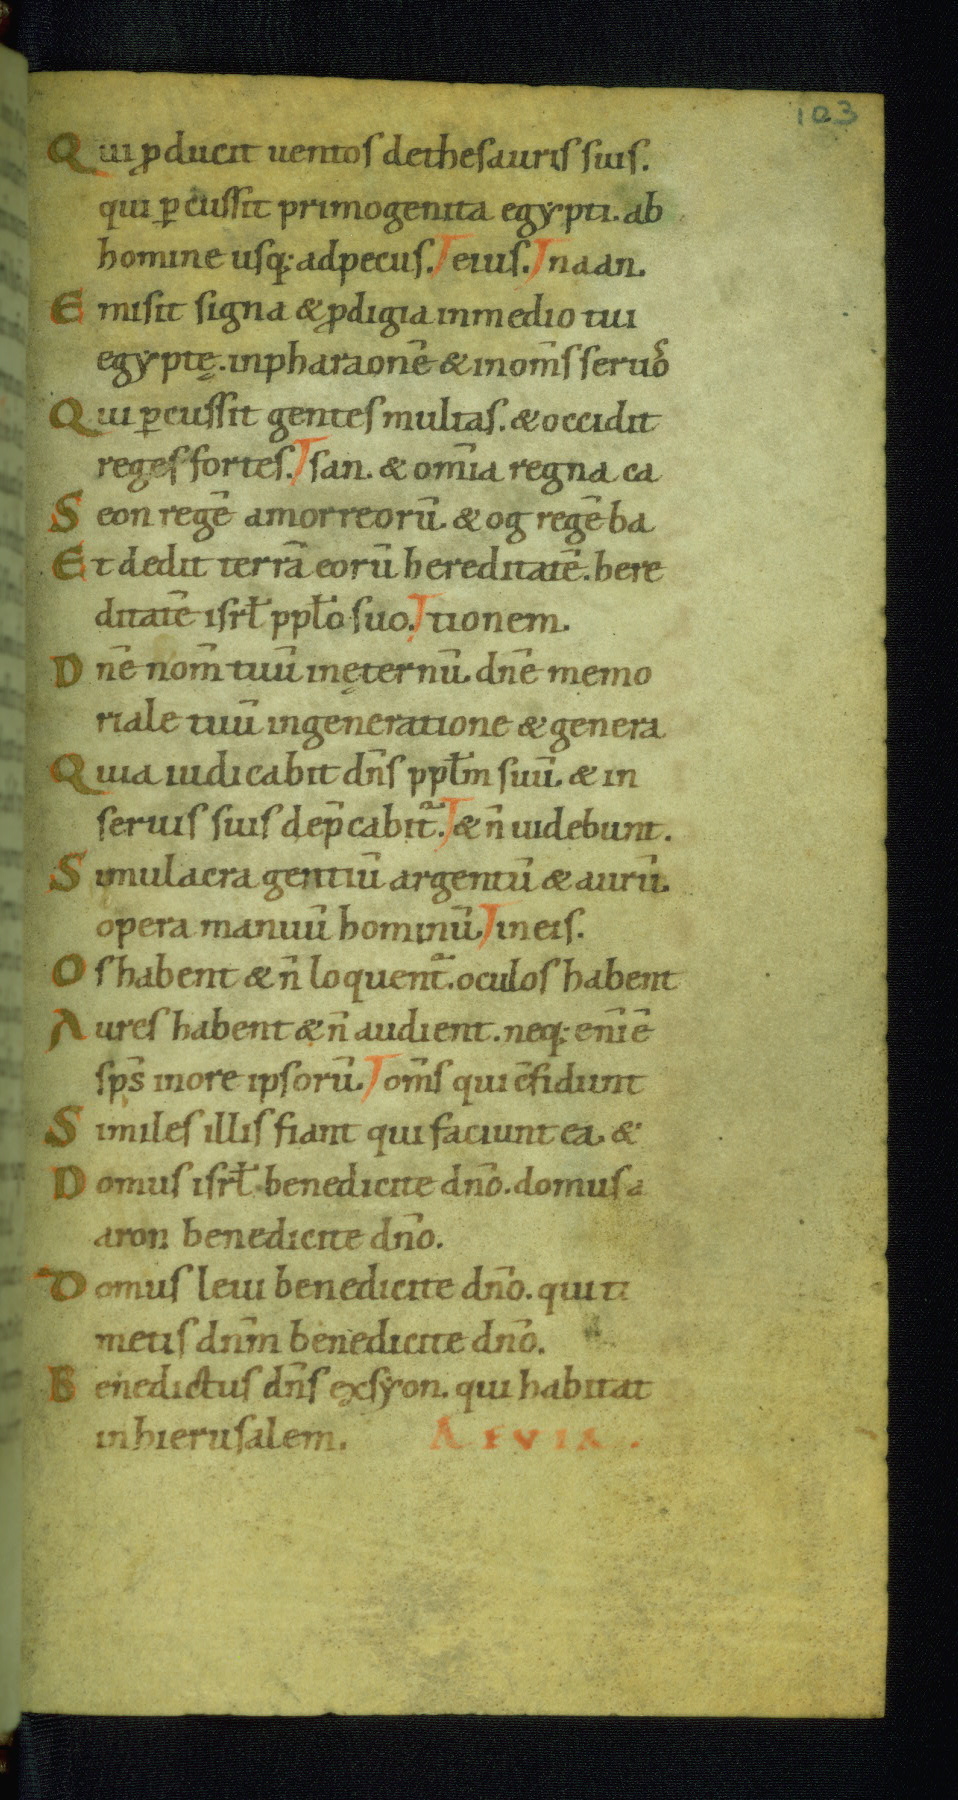 103
Qui ꝓducit uentos dethesauris suis.
qui ꝑcussit primogenita egẏpti. ab
homine usq; adpecus. eius. naan.
Emisit signa & ꝓdigia inmedio tui
egẏptę. inpharaonē & inom̄s seruoꝝ
Qui ꝑcussit gentes multas. & occidit
reges fortes. san. & om̄ia regna ca
Seon regē amorreorū. & og regē ba
Et dedit terrā eorū hereditatē. here
ditatē isrł ppło suo. tionem.
Dn̄e nom̄ tuū inęternū. dn̄e memo
riale tuū ingeneratione & genera
Quia iudicabit dn̄s ppłm suū. & in
seruis suis dep̄cabit᷑. & n̄ uidebunt.
Simulacra gentiū argentū & aurū.
opera manuū hominū. ineis.
Os habent & n̄ loquent᷑. oculos habent
Aures habent & n̄ audient. neq; enī ē
sp̄s inore ipsorū. om̄s qui c̄fidunt
Similes illis fiant qui faciunt ea. &
Domus isrł benedicite dn̄o. domus a
aron benedicite dn̄o.
Domus leui benedicite dn̄o. qui ti
metis dnm̄ benedicite dn̄o.
Benedictus dn̄s exsẏon. qui habitat
inhierusalem. AEVIA.